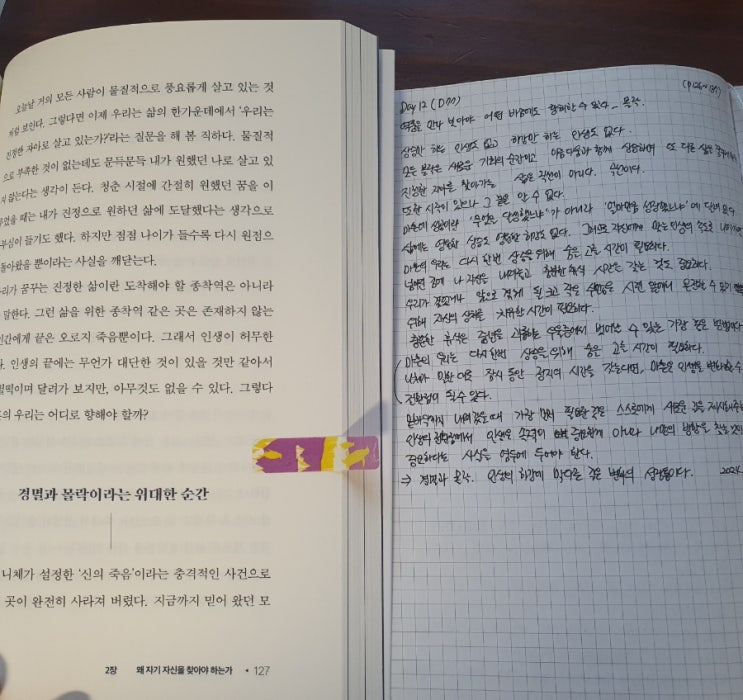 오늘날 거의 모든 사람이 물질적으로 풍요롭게 살고 있는 것
처럼 보인다. 그렇다면 이제 우리는 삶의 한가운데에서 '우리는
진정한 자아로 살고 있는가?'라는 질문을 해 봄 직하다. 물질적
으로 부족한 것이 없는데도 문득문득 내가 원했던 나로 살고 있
지 않는다는 생각이 든다. 청춘 시절에 간절히 원했던 꿈을 이
때는 내가 진정으로 원하던 삶에 도달했다는 생각으로
부심이 들기도 했다. 하지만 점점 나이가 들수록 다시 원점으
돌아왔을 뿐이라는 사실을 깨닫는다.
리가 꿈꾸는 진정한 삶이란 도착해야 할 종착역은 아니라
말한다. 그런 삶을 위한 종착역 같은 곳은 존재하지 않는
인간에게 끝은 오로지 죽음뿐이다. 그래서 인생이 허무한
다. 인생의 끝에는 무언가 대단한 것이 있을 것만 같아서
떡이며 달려가 보지만, 아무것도 없을 수 있다. 그렇다
의 우리는 어디로 향해야 할까?
경멸과 몰락이라는 위대한 순간
니체가 설정한 '신의 죽음'이라는 충격적인 사건으로
곳이 완전히 사라져 버렸다. 지금까지 믿어 왔던 모
2장 왜 자기 자신을 찾아야 하는가 • 127
Day 12
어떤 바닥에도 수 있다 _ 몰락.
상승만 하는 인생도 없고 하강만 하는 인생도 없다.
모든 몰락은 새로운 기회의 순간이고
진정한 자아를 찾아가는 삶은 직선이 아니다. 곡선이다.
또한 시작이 있으나 그 끝은 알 수 없다.
마흔의 삶이란 '무엇을 '가 아니라 '얼마만큼 성장했느냐'에 달려 있다
삶에는 영원한 상승도 영원한 하강도 없다. 그러므로 자신에게 맞는 인생의 속도로
마흔의 우리는 다시 한번 상승을 위해 숨을 고를 시간이 필요하다.
나 자신을 내려놓고 충분한 휴식 시간을 갖는 것도 중요하다.
우리가 앞으로 겪게 될 크고 작은 수많은 시련 앞에서
위해 자신의 상처를 치유할 시간이 필요하다.
충분한 휴식은 우울증에서 벗어날 수 있는 가장 좋은 방법이다
마흔의 우리는 다시 한번 상승을 위해 숨을 고를 시간이 필요하다.
잠시 동안 시간을 갖는다면, 마흔은 인생을 변화시킬 수
전환점이 될 수 있다.
내려갔을 때 가장 먼저 필요한 것은 스스로에게 새로운 길을
인생의 인생은 속력이 중요한 게 아니라 나만의 방향을 찾는 것이
중요하다는 사실을 염두에 두어야 한다.
⇒ 경멸과 몰락. 인생의 하강에